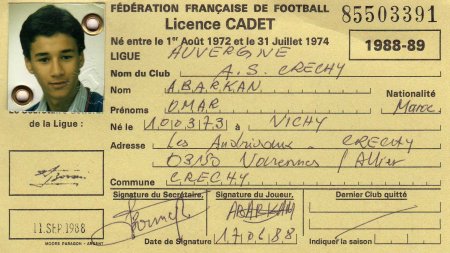 FÉDÉRATION FRANÇAISE DE FOOTBALL
Licence CADET
85503391
Né entre le 1er Août 1972 et le 31 Juillet 1974
1988-89
LIGUE AUVERGNE
Nom du Club A.S. CRECHY
Nom ABARKAN
Nationalité
Prénoms OMAR
Maroc
de la Ligue :
Né le 10 03 73 à VICHY
Adresse Les CRECHY
03150 Varennes / Allier
Commune CRECHY
Signature du Secrétaire,
Signature du Joueur,
Dernier Club quitté
ABARKAN
11 SEP 1988
Date de Signature 17 06 88
Indiquer la saison
MOORE PARAGON